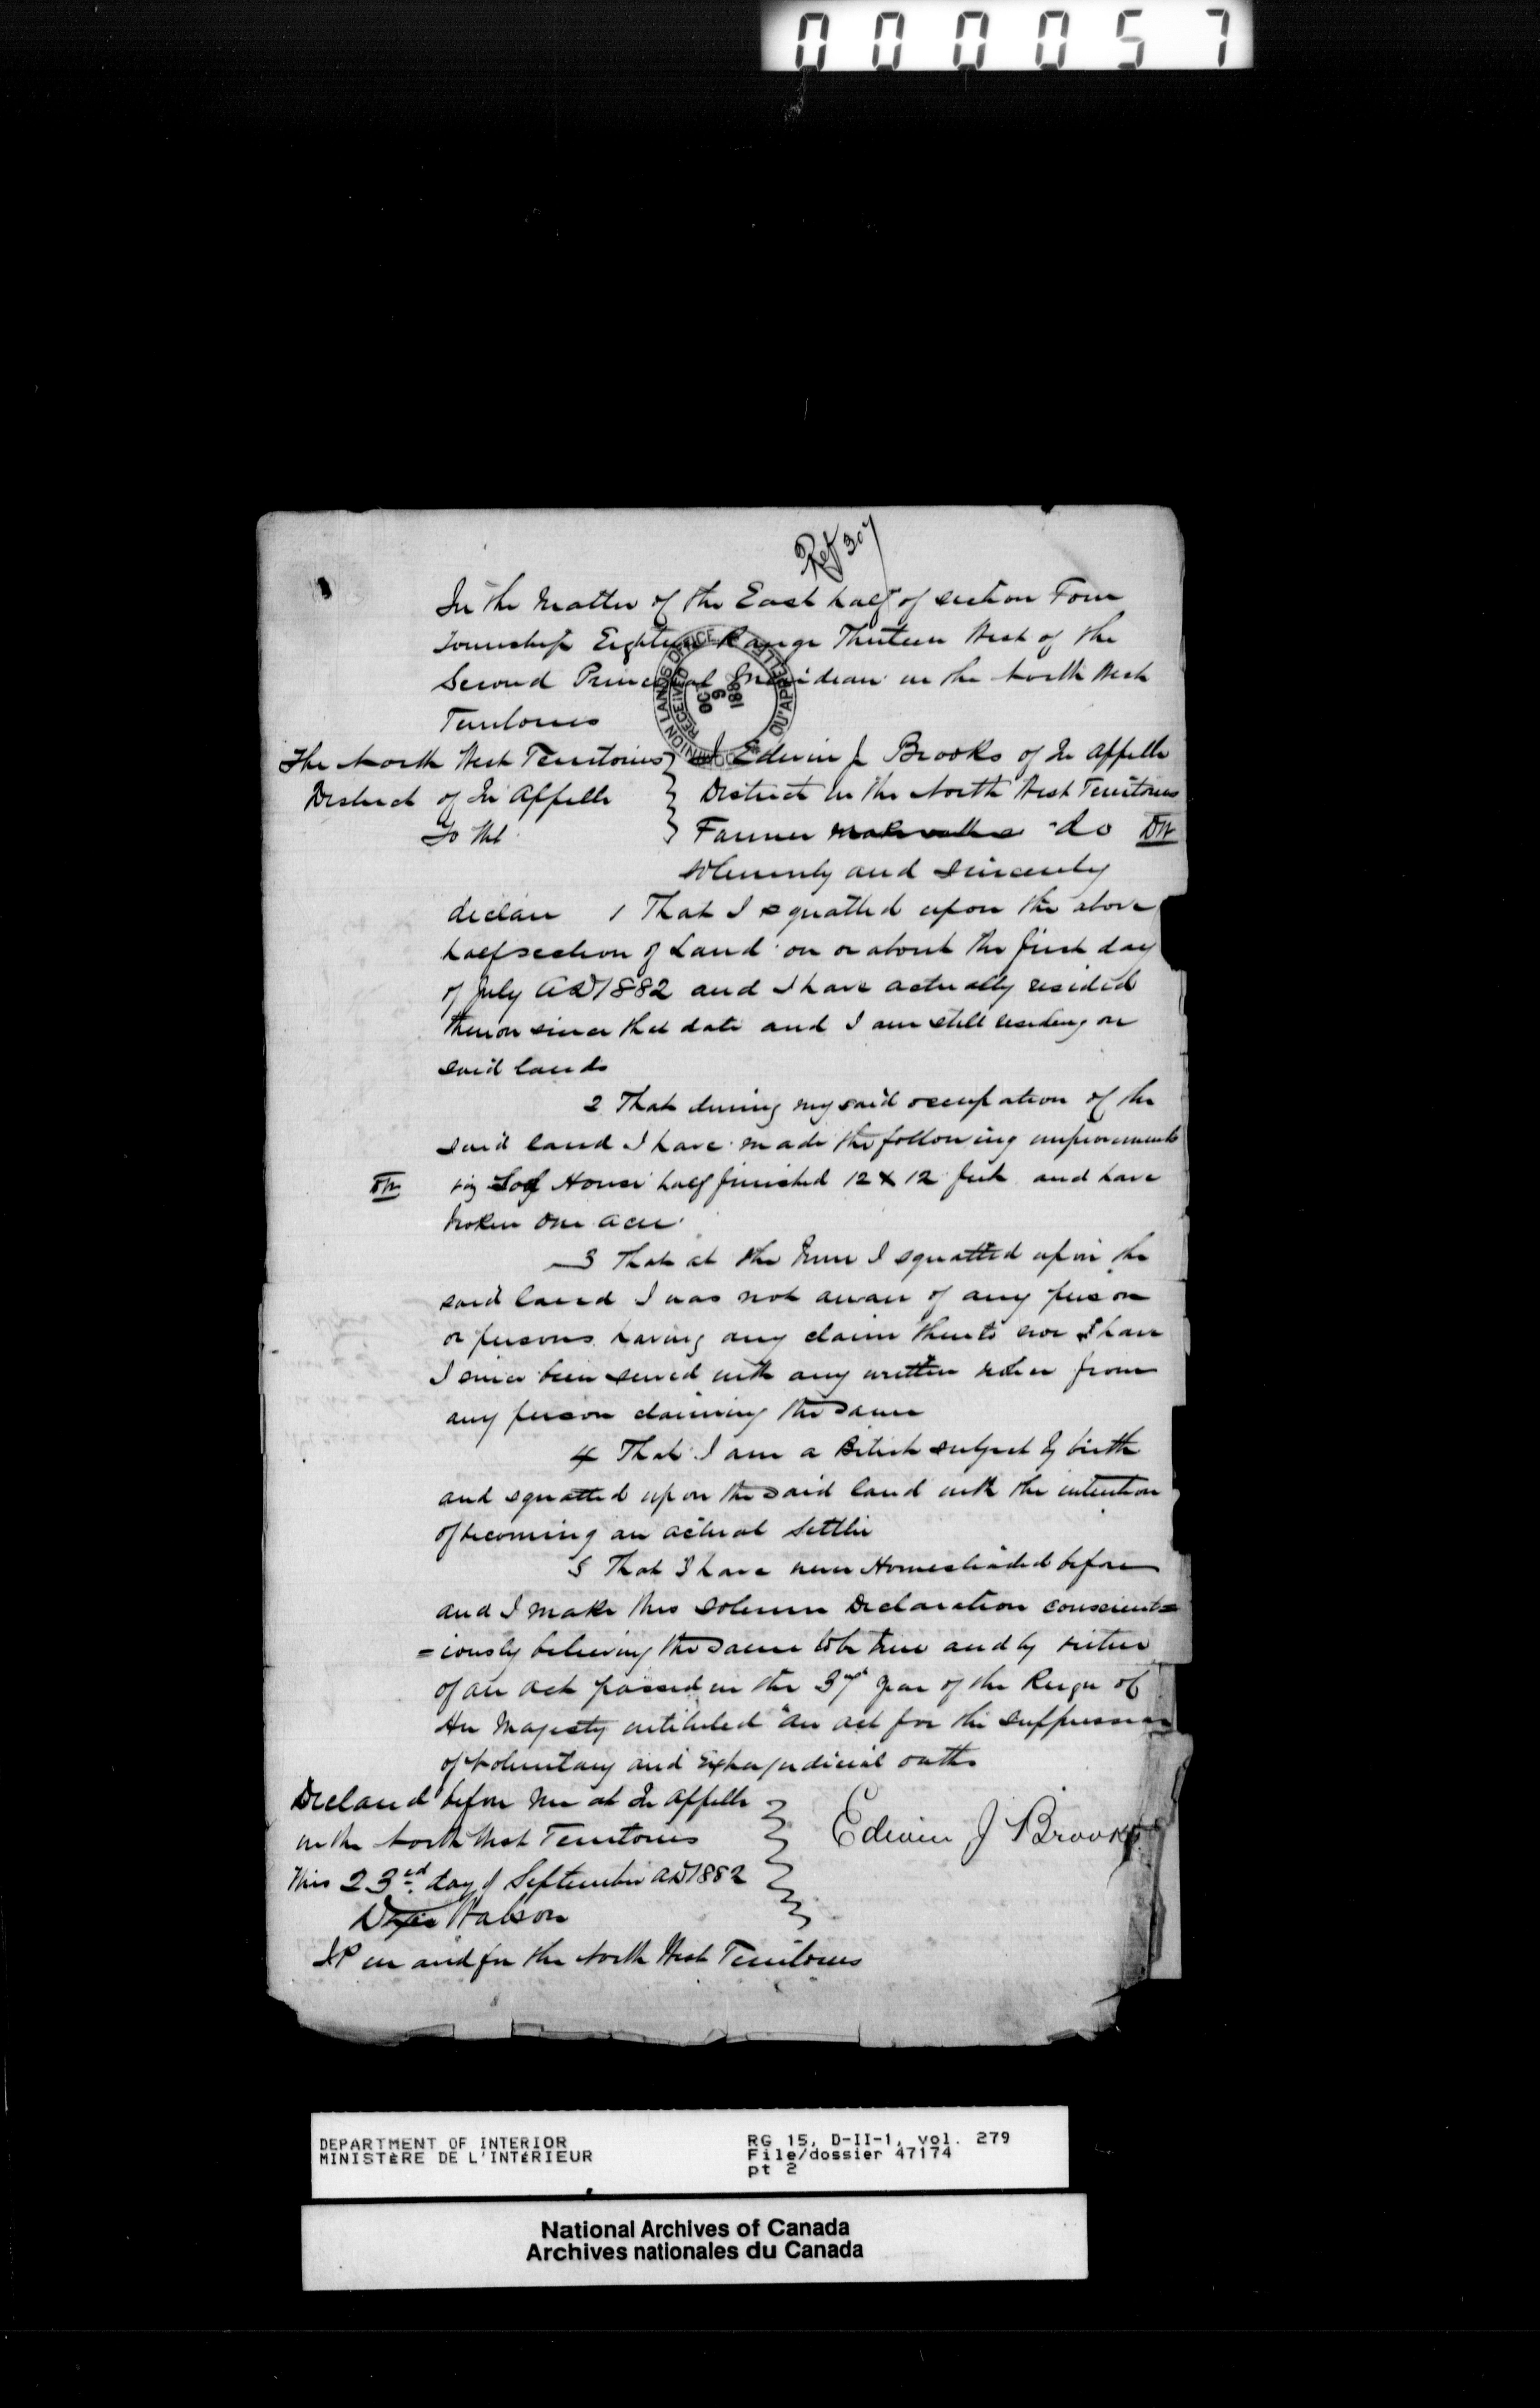 000057
Ref 307
In the Matter of the East half of section Four
Township Eighteen Range Thirteen West of the
Second Principal Meridian in the North West
Territories
The North West Territories
District of Qu Appelle
To Wit
I Edwin J Brooks of Qu Appelle
District in the North West Territories
Farmer do DW
solemnly and sincerely
declare 1 That I squatted upon the above
half section of Land on or about the first day
of July AD 1882 and I have actually resided
thereon since that date and I am still residing on
said lands
2 That during my said occupation of the
said land I have made the following improvements
DW viz Log House half finished 12 x 12 feet and have
broken one acre
3 That at the time I squatted upon the
said land I was not aware of any person
or persons having any claim thereto nor have
I since been served with any written notice from
any person claiming the same
4 That I am a British subject by birth
and squatted upon the said land with the intention
of becoming an actual settler
5 That I have never Homesteaded before
and I make this solemn Declaration conscient=
=iously believing the same to be true and by virtue
of an act passed in the 37th year of the Reign of
Her Majesty intituled "An act for the suppression
of voluntary and Extrajudicial oaths
Declared before me at Qu Appelle
in the North West Territories
this 23rd day of September AD 1882
Watson
J.P in and for the North West Territories
Edwin J Brooks
DOMINION LANDS OFFICE QU'APPELLE
RECEIVED
OCT
9
188
DEPARTMENT OF INTERIOR
MINISTÈRE DE L'INTÉRIEUR
RG 15, D-II-1, vol. 279
File/dossier 47174
pt 2
National Archives of Canada
Archives nationales du Canada